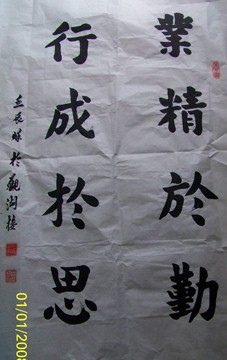 業精於勤
行成於思
於觀澗楼
01/01/200